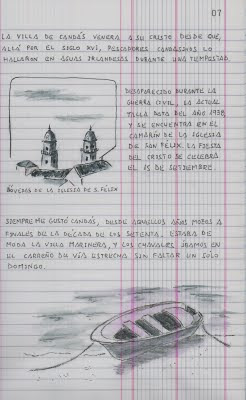 07
LA VILLA DE CANDÁS VENERA A SU CRISTO DESDE QUE,
ALLÁ POR EL SIGLO XVI, PESCADORES CANDASINOS LO
HALLARON EN AGUAS IRLANDESAS DURANTE UNA TEMPESTAD.
DESAPARECIDO DURANTE LA
GUERRA CIVIL, LA ACTUAL
TALLA DATA DEL AÑO 1938,
Y SE ENCUENTRA EN EL
CAMARÍN DE LA IGLESIA
DE SAN FELIX. LA FIESTA
DEL CRISTO SE CELEBRA
EL 15 DE SETIEMBRE.
BÓVEDAS DE LA IGLESIA DE S. FELIX
SIEMPRE ME GUSTÓ CANDÁS, DESDE AQUELLOS AÑOS MOZOS A
FINALES DE LA DÉCADA DE LOS SETENTA. ESTABA DE
MODA LA VILLA MARINERA, Y LOS CHAVALES ÍBAMOS EN
EL CARREÑO DE VÍA ESTRECHA SIN FALTAR UN SOLO
DOMINGO.